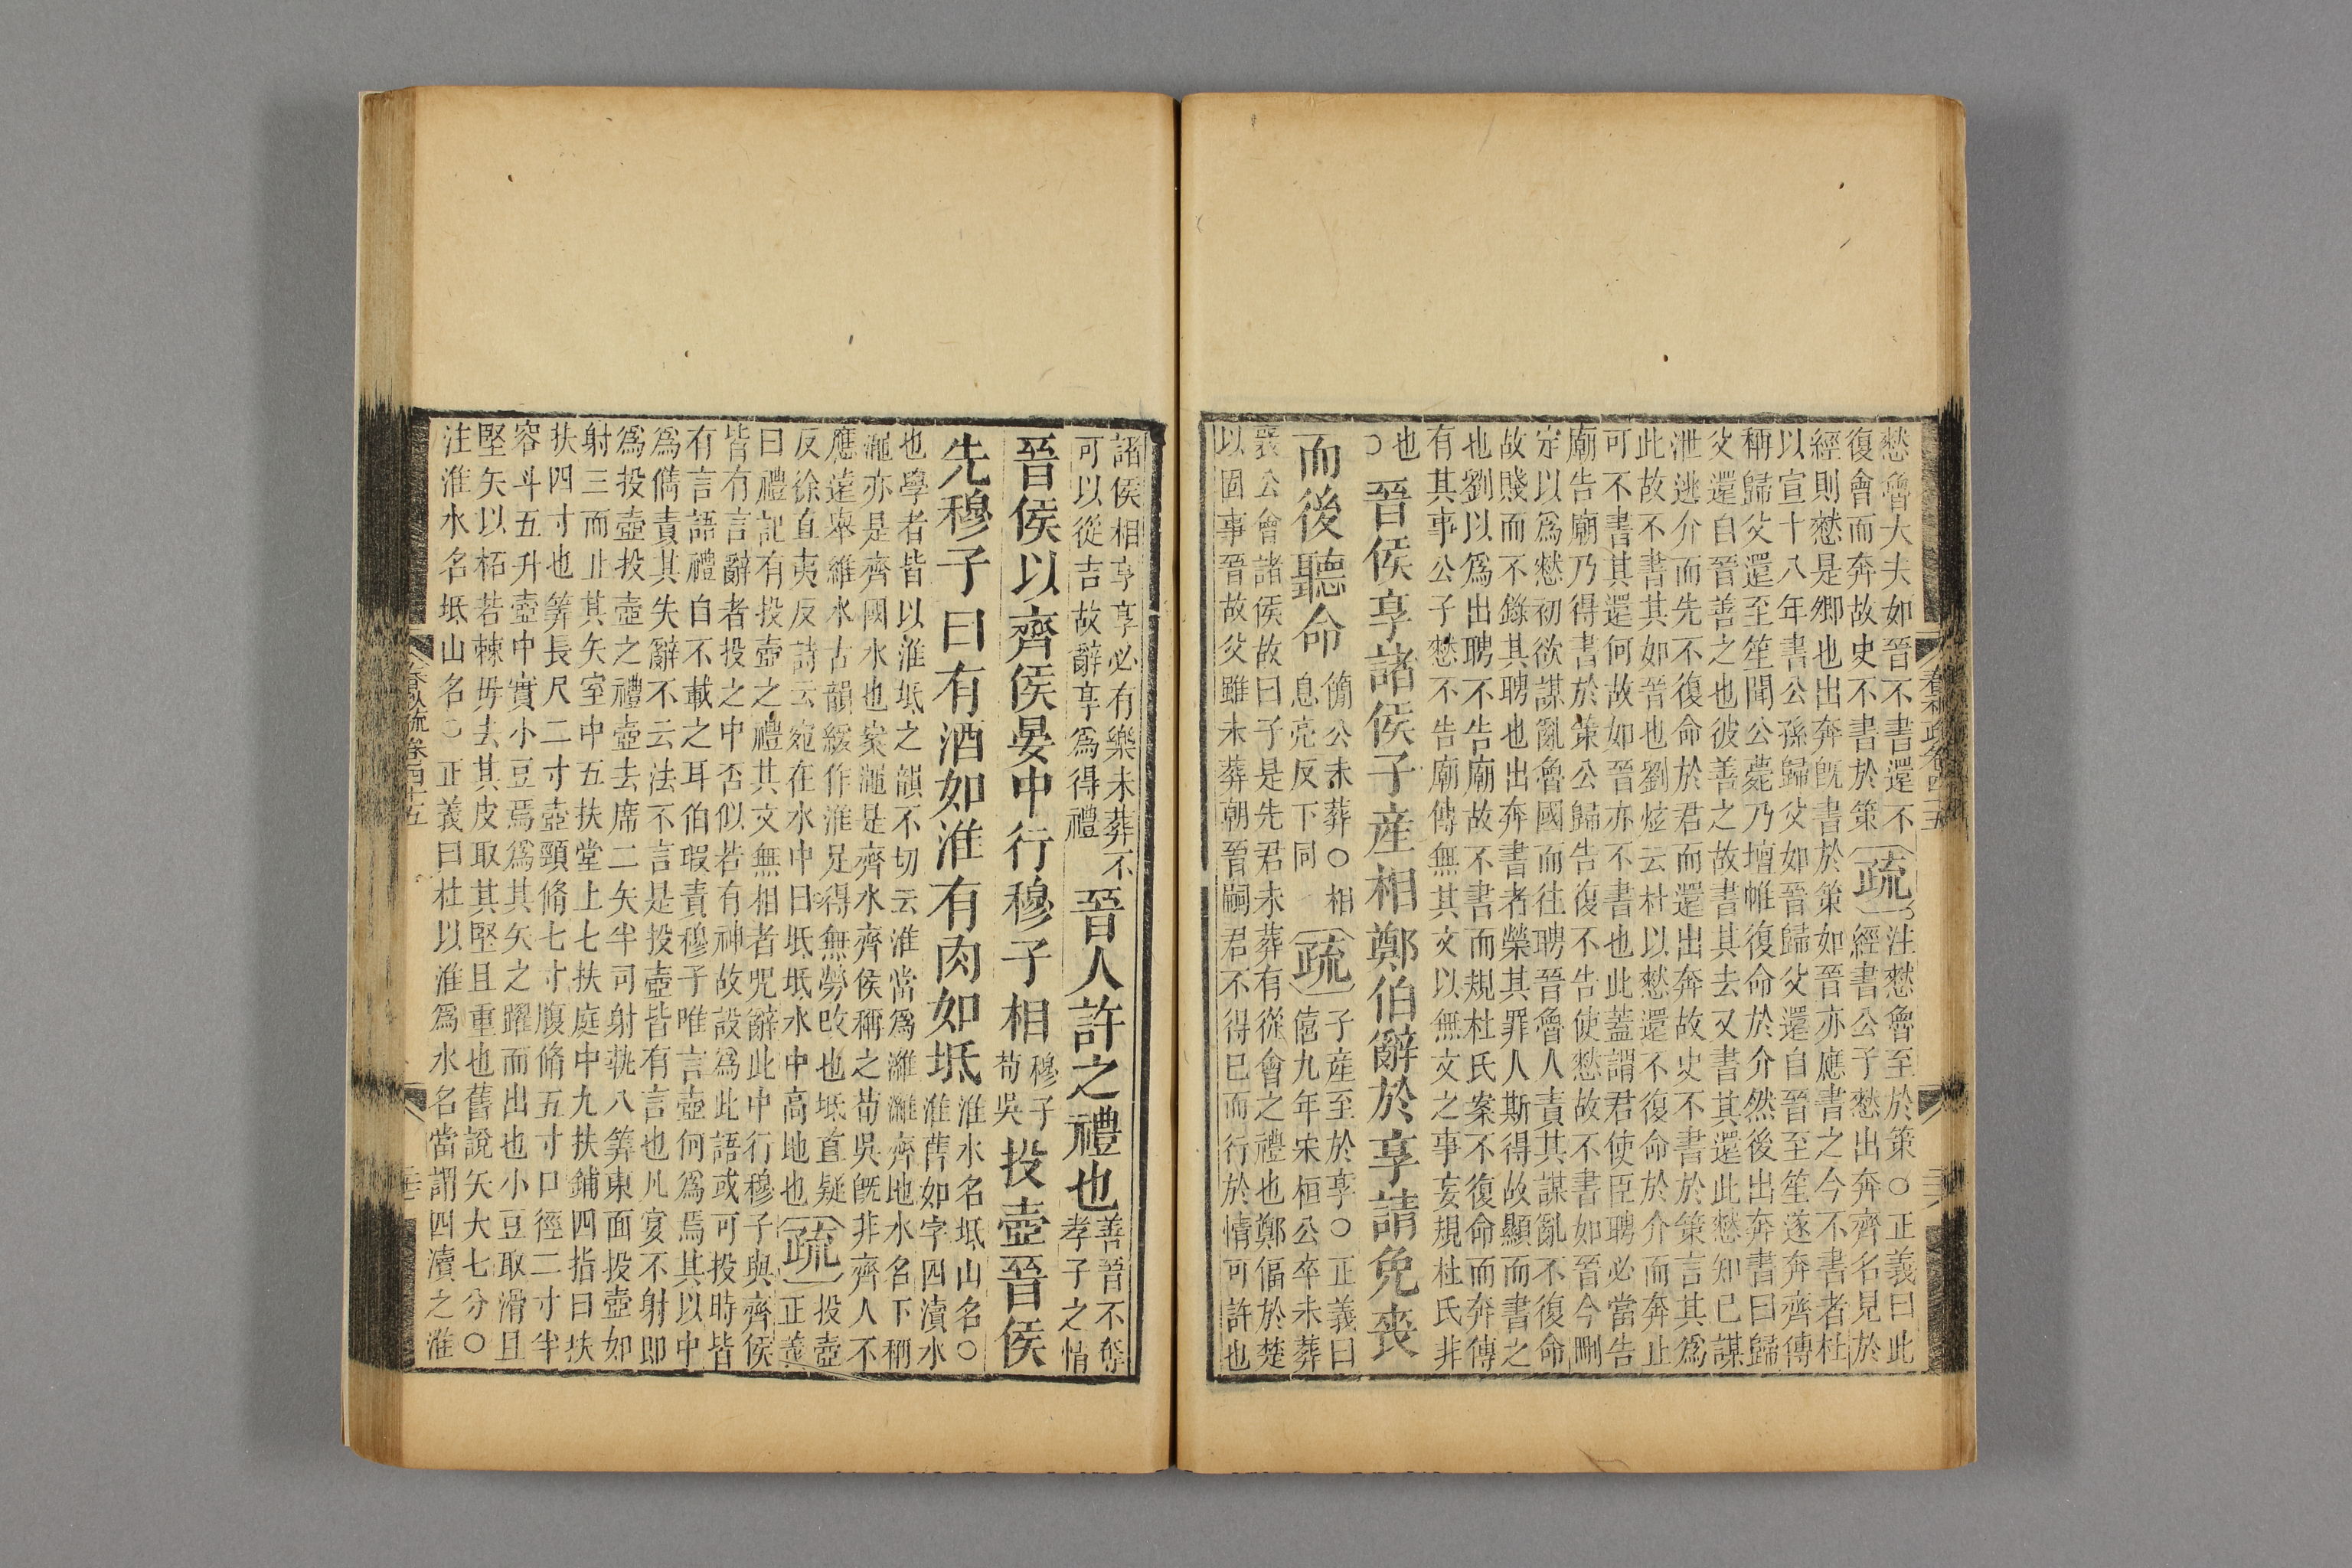 春秋疏卷四十五
憖魯大夫如晉不書還不
復會而奔故史不書於策
疏
注憖魯至於策○正義曰此
經書公子憖出奔齊名見於
經則憖是卿也出奔既書於策如晉亦應書之今不書者杜
以宣十八年書公孫歸父如晉歸父還自晉至笙遂奔齊傳
稱歸父還至笙聞公薨乃壇帷復命於介然後出奔書曰歸
父還自晉善之也彼善之故書其去又書其還此憖知已謀
泄逃介而先不復命於君而還出奔故史不書於策言其爲
此故不書其如晉也劉炫云杜以憖還不復命於介而奔止
可不書其還何故如晉亦不書也此蓋謂君使臣聘必當告
廟告廟乃得書於策公歸告復不告使憖故不書如晉今刪
定以爲憖初欲謀亂魯國而往聘晉魯人責其謀亂不復命
故賤而不錄其聘也出奔書者榮其罪人斯得故顯而書之
也劉以爲出聘不告廟故不書而規杜氏案不復命而奔傳
有其事公子憖不告廟傳無其文以無文之事妄規杜氏非
也
○晉侯享諸侯子產相鄭伯辭於享請免喪
而後聽命
簡公未葬○相
息亮反下同
疏
子產至於享○正義曰
僖九年宋桓公卒未葬
襄公會諸侯故曰子是先君未葬有從會之禮也鄭偪於楚
以固事晉故父雖未葬朝晉嗣君不得已而行於情可許也
諸侯相享享必有樂未葬不
可以從吉故辭享爲得禮
晉人許之禮也
善晉不奪
孝子之情
晉侯以齊侯晏中行穆子相
穆子
荀吳
投壺晉侯
先穆子曰有酒如淮有肉如坻
淮水名坻山名○
淮舊如字四瀆水
也學者皆以淮坻之韻不切云淮當爲濰濰齊地水名下稱
澠亦是齊國水也案澠是齊水齊侯稱之荀吳既非齊人不
應遠舉濰水古韻緩作淮足得無勞改也坻直疑
反徐直夷反詩云宛在水中曰坻坻水中高地也
疏
投壺
正義
曰禮記有投壺之禮其文無相者咒辭此中行穆子與齊侯
皆有言辭者投之中否似若有神故設爲此語或可投時皆
有言語禮自不載之耳伯瑕責穆子唯言壺何爲焉其以中
爲儁責其失辭不云法不言是投壺皆有言也凡宴不射即
爲投壺投壺之禮壺去席二矢半司射執八筭東面投壺如
射三而止其矢室中五扶堂上七扶庭中九扶鋪四指曰扶
扶四寸也筭長尺二寸壺頸脩七寸腹脩五寸口徑二寸半
容斗五升壺中實小豆焉爲其矢之躍而出也小豆取滑且
堅矢以柘若棘毋去其皮取其堅且重也舊說矢大七分○
注淮水名坻山名○正義曰杜以淮爲水名當謂四瀆之淮
春秋疏卷四十五